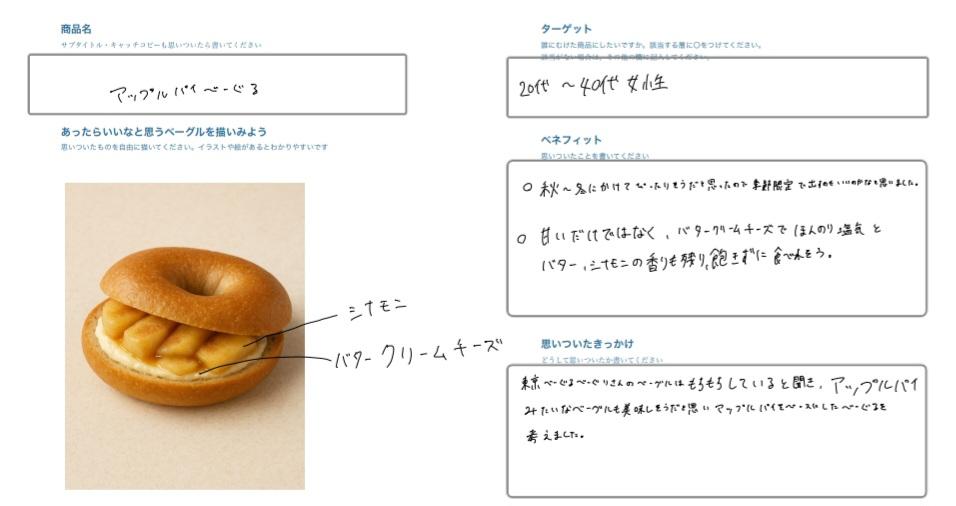 商品名
サブタイトル・キャッチコピーも思いついたら書いてください
アップルパイベーぐる
あったらいいなと思うベーグルを描いみよう
思いついたものを自由に描いてください。イラストや絵があるとわかりやすいです
シナモン
バタークリームチーズ
ターゲット
誰にむけた商品にしたいですか。該当する層に〇をつけてください。
該当がない場合は、その他の欄に記入してください。
20代 〜 40代 女性
ベネフィット
思いついたことを書いてください
○ 秋〜冬にかけてぴったりそうだと思ったので季節限定で出すのもいいのかなと思いました。
○ 甘いだけではなく、バタークリームチーズでほんのり塩気と
バター、シナモンの香りも残り、飽きずに食べれそう。
思いついたきっかけ
どうして思いついたか書いてください
東京べーぐるべーぐりさんのベーグルはもちもちしていると聞き、アップルパイ
みたいなベーグルも美味しそうだと思いアップルパイをベースにしたべーぐるを
考えました。